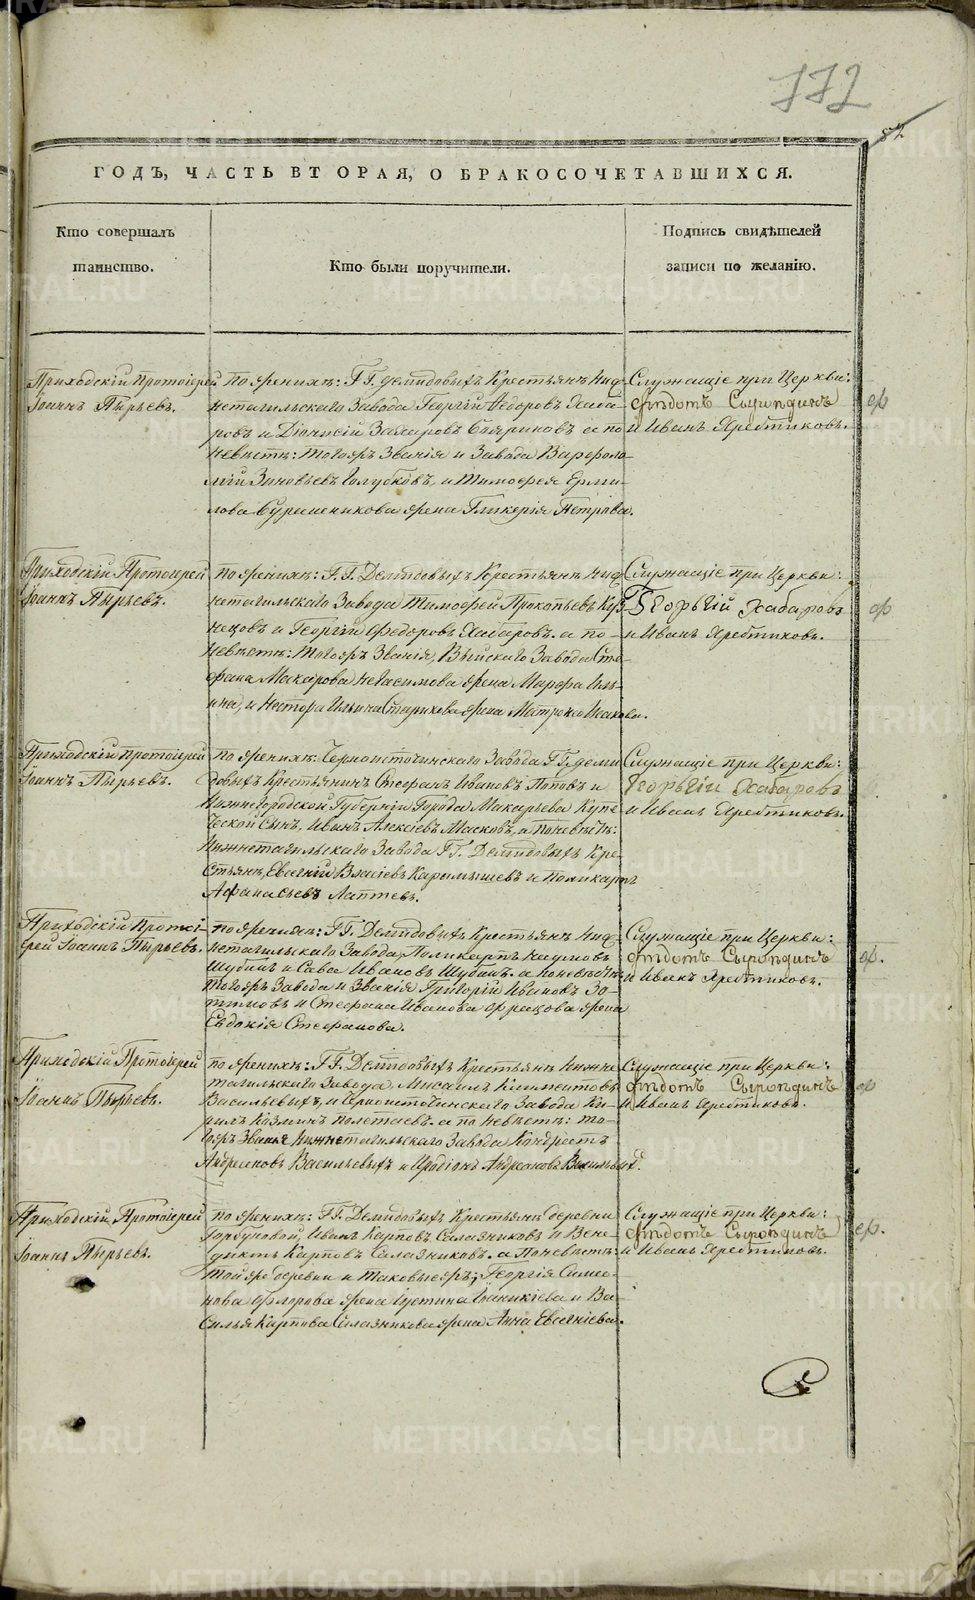 772
82
ГОДЪ, ЧАСТЬ ВТОРАЯ, О БРАКОСОЧЕТАВШИХСЯ.
Кто совершалъ
таинство.
Кто были поручители.
Подпись свидѣтелей
записи по желанію.
Приходскій протоіерей
Іоаннъ Пырьевъ.
по женихѣ: ГГ. Демидовыхъ Крестьянъ Ниж-
нетагильскаго Завода Георгій Ѳедоровъ Хаба-
ровъ и Діонисій Захаровъ а по
невѣстѣ: тогожъ Званія и Завода Варфоло-
мій Зиновьевъ Голубковъ, и Тимофея Ерми-
лова жена Гликерія Петрова.
Служащіе при Церкви:
Ѳедотъ
и Иванъ Хребтиковъ.
Приходскій Протоіерей
Іоаннъ Пырьевъ.
по женихѣ: Г.Г. Демидовыхъ Крестьянъ Ниж-
нетагильскаго Завода Тимофей Прокопьевъ Куз-
нецовъ и Георгій Ѳедоровъ Хабаровъ. а по-
невѣстѣ: тогожъ Званія, Выйскаго Завода Сте-
фана Макарова жена Марфа Иль-
ина, и Нестора Ильина Старикова жена Матрона Исакова.
Служащіе при Церкви:
Георьгій Хабаровъ
и Иванъ Хребтиковъ.
Приходскій протоіерей
Іоаннъ Пырьевъ.
по женихѣ: Черноисточинскаго Завода ГГ. Деми-
довыхъ Крестьянинъ Стефанъ Ивановъ Поповъ и
Нижегородской Губерніи Города Макарьева Купе-
ческой сынъ, Иванъ Алексіевъ Масковъ, а по невѣстѣ:
Нижнетагильскаго Завода ГГ. Демидовыхъ Кре-
стьянъ, Евгеній Власіевъ Карамышевъ и Поликарпъ
Афанасьевъ Лаптевъ.
Служащіе при Церкви:
Георьгіи Хабаровъ
и Иванъ Хребтиковъ.
Приходскій протоі-
ерей Іоаннъ Пырьевъ.
по женихѣ: ГГ. Демидовыхъ Крестьянъ Ниж-
нетагильскаго Завода, Поликарпъ Наумовъ
Шубинъ и Сава Ивановъ Шубинъ. а по невѣстѣ:
тогожъ Завода и Званія Григорій Ивановъ
и Стефана Иванова жена
Евдокія Стефанова.
Служащіе при Церкви:
Ѳедотъ
и Иванъ Хребтиковъ.
Приходскій Протоіерей
Іоаннъ Пырьевъ.
по женихѣ: ГГ. Демидовыхъ Крестьянъ Нижне-
тагильскаго Завода, Мисаилъ Климентовъ
Васильевыхъ, и Черноисточинскаго Завода Ки-
рилъ Козминъ Полетаевъ. а по невѣстѣ: то-
гожъ Званія Нижнетагильскаго Завода Кондратъ
Андреяновъ Васильевыхъ и Иродіонъ Андреяновъ Васильевыхъ.
Служащіе при Церкви:
Ѳедотъ
и Иванъ Хребтиковъ.
Приходскій Протоіерей
Іоаннъ Пырьевъ.
по женихѣ: ГГ. Демидовыхъ Крестьянъ деревни
Горбуновой, Иванъ Карповъ и Вене-
диктъ Карповъ а по невѣстѣ:
той же деревни и таковыежъ; Георгія Симео-
нова Флорова жена Іустина Іоаникіева и Ва-
силья Карпова жена Анна Евгеніева.
Служащіе при Церкви:
Ѳедотъ
и Иванъ Хребтиковъ.
METRIKI.GASO-URAL.RU